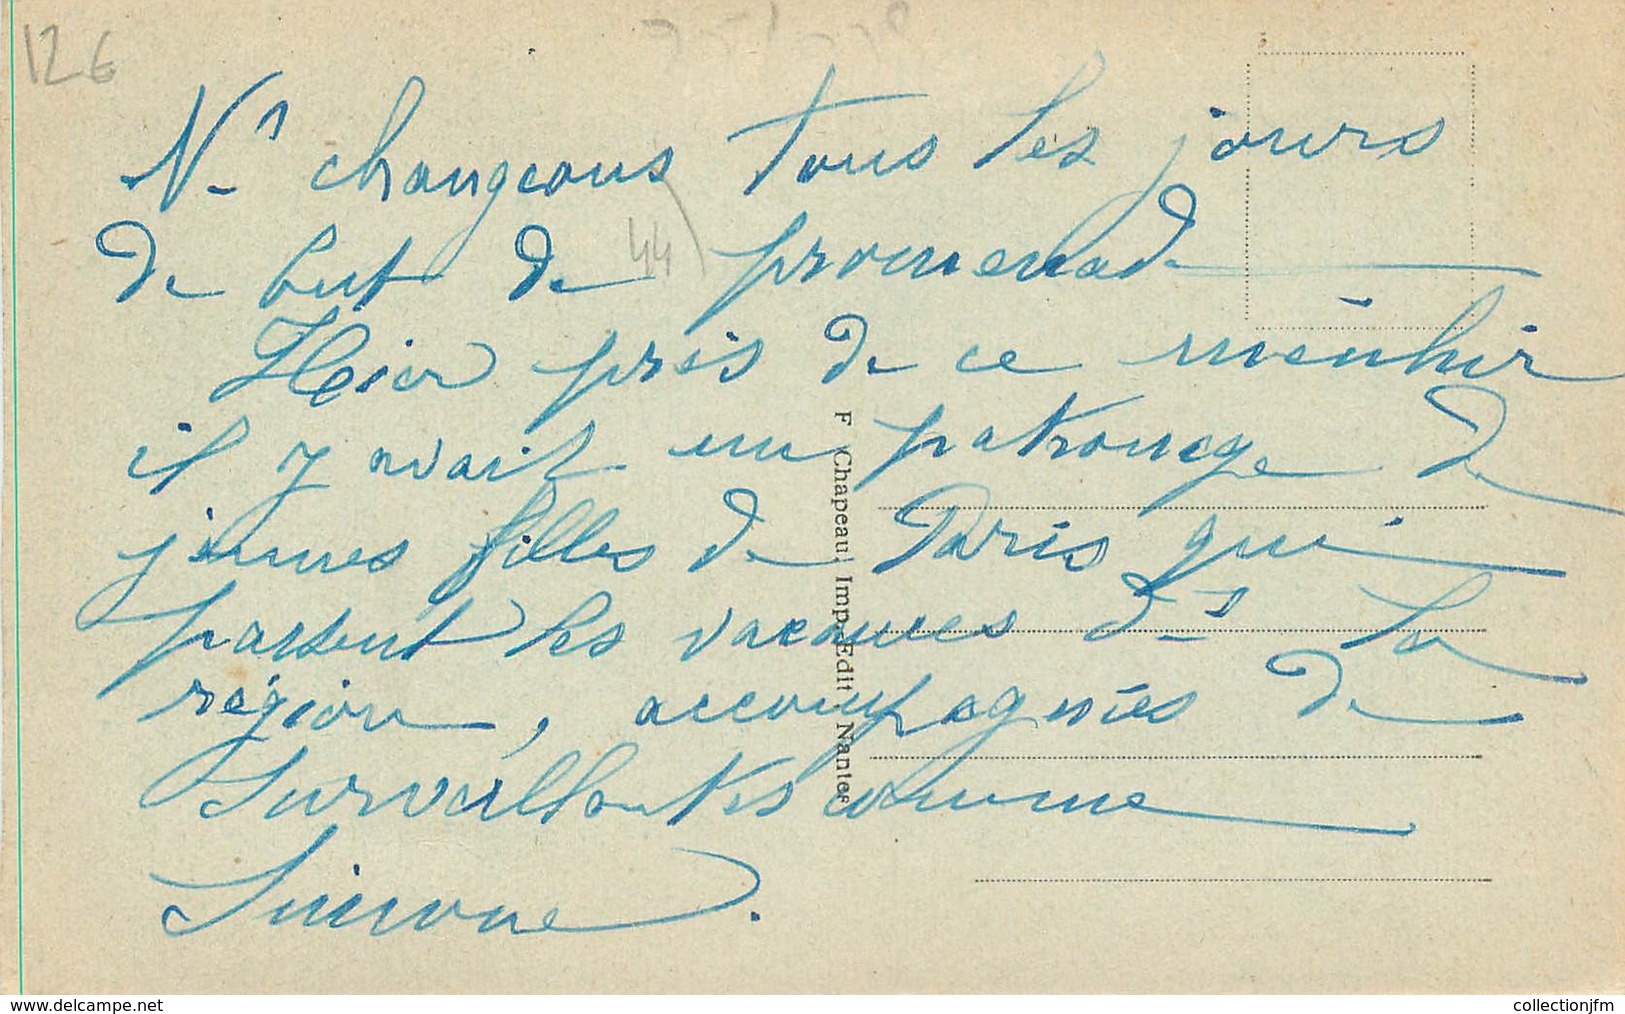 12€
Ns changeons tous les jours
de but de promenade
44
Hier près de ce menhir
il y avait un patronage de
jeunes filles de Paris qui
passent les vacances ds la
région, accompagnées de
surveillantes comme
Simone.
F Chapeau Imp.-Edit - Nantes
www.delcampe.net
collectionjfm